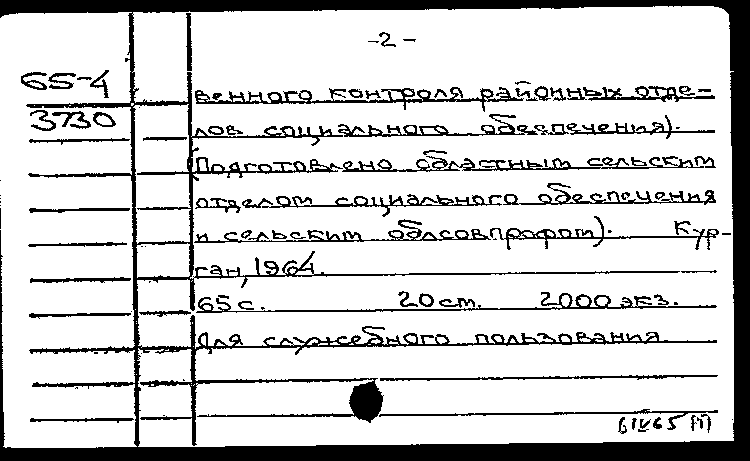 -2-
65-4
3730
венного контроля районных отде-
лов социального обеспечения).
(Подготовлено областным сельским
отделом социального обеспечения
и сельским облсовпрофом). Кур-
ган, 1964.
65 с. 20 см. 2000 экз.
Для служебного пользования